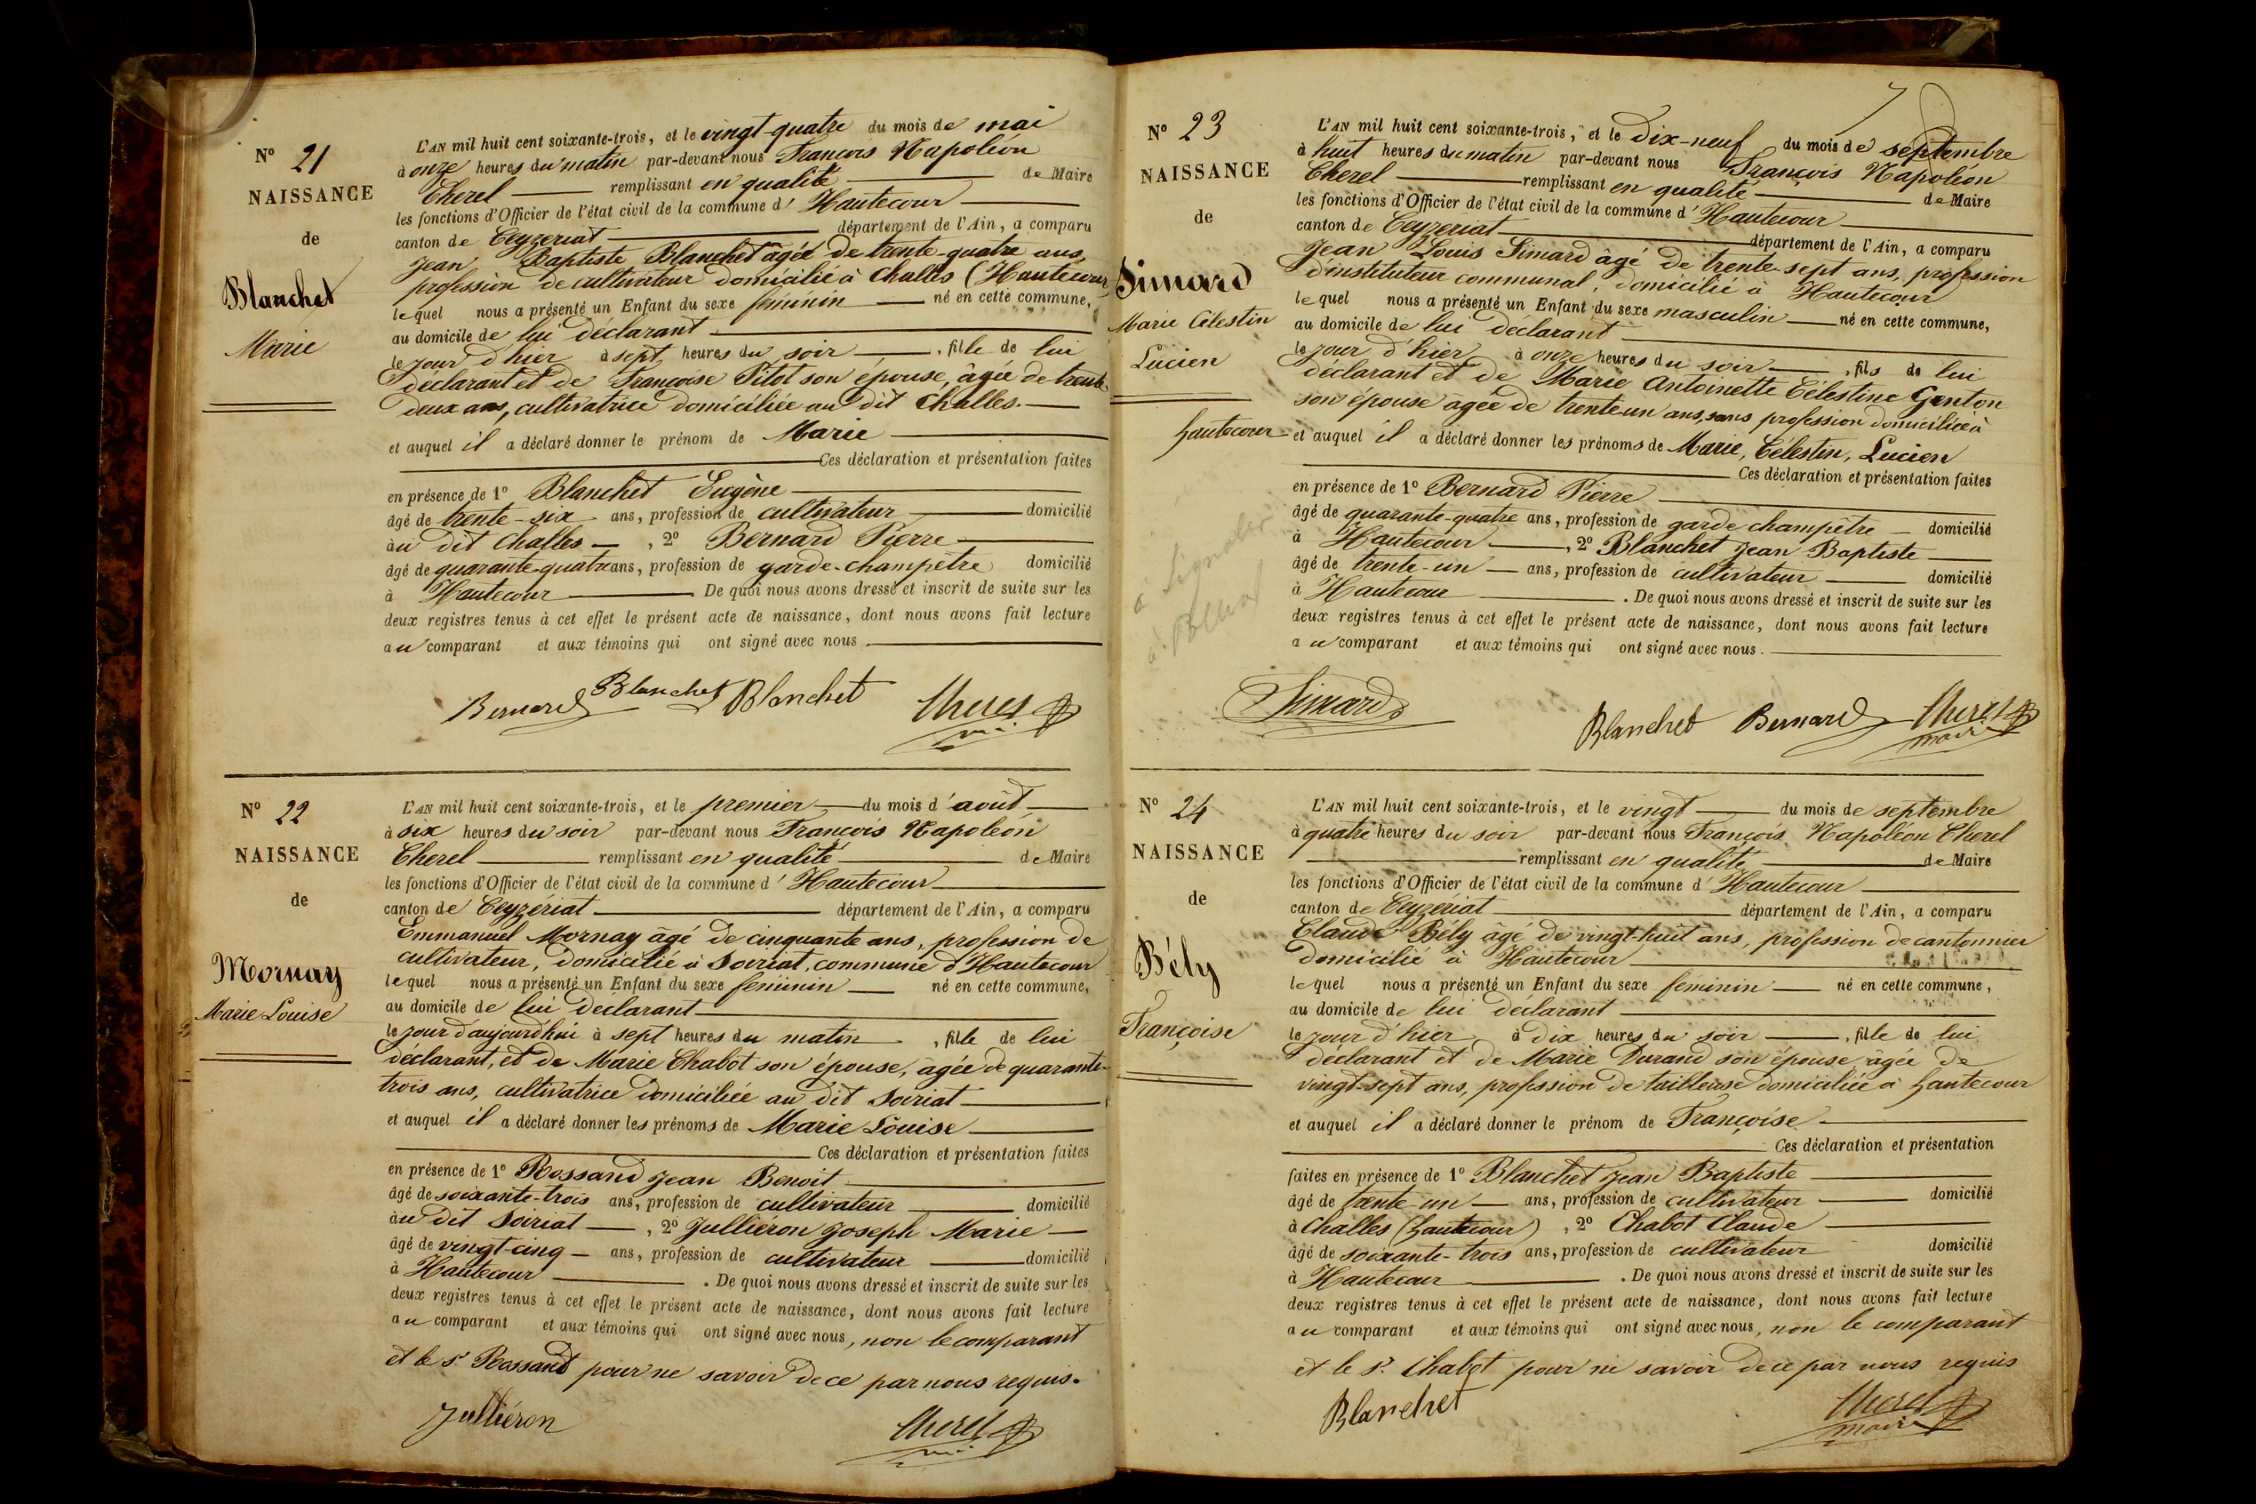 N° 21
NAISSANCE
de
Blanchet
Marie
L'AN mil huit cent soixante-trois, et le vingt-quatre du mois de mai
à onze heures du matin par-devant nous François Napoléon
Cherel remplissant en qualité de Maire
les fonctions d'Officier de l'état civil de la commune d'Hautecour
canton de Ceyzériat département de l'Ain, a comparu
Jean Baptiste Blanchet âgé de trente-quatre ans,
profession de cultivateur domicilié à Challes (Hautecour)
lequel nous a présenté un Enfant du sexe féminin né en cette commune,
au domicile de lui déclarant
le jour d'hier à sept heures du soir, fille de lui
déclarant et de Françoise Pitot son épouse, âgée de trente-
deux ans, cultivatrice domiciliée au dit Challes.
et auquel il a déclaré donner le prénom de Marie
Ces déclaration et présentation faites
en présence de 1° Blanchet Eugène
âgé de trente-six ans, profession de cultivateur domicilié
au dit Challes, 2° Bernard Pierre
âgé de quarante-quatre ans, profession de garde-champêtre domicilié
à Hautecour De quoi nous avons dressé et inscrit de suite sur les
deux registres tenus à cet effet le présent acte de naissance, dont nous avons fait lecture
au comparant et aux témoins qui ont signé avec nous.
Bernard Blanchet Blanchet Cherel
N° 22
NAISSANCE
de
Mornay
Marie Louise
L'AN mil huit cent soixante-trois, et le premier du mois d'août
à six heures du soir par-devant nous François Napoléon
Cherel remplissant en qualité de Maire
les fonctions d'Officier de l'état civil de la commune d'Hautecour
canton de Ceyzériat département de l'Ain, a comparu
Emmanuel Mornay âgé de cinquante ans, profession de
cultivateur, domicilié à Soiriat, commune d'Hautecour
lequel nous a présenté un Enfant du sexe féminin né en cette commune,
au domicile de lui déclarant
le jour d'aujourd'hui à sept heures du matin, fille de lui
déclarant, et de Marie Chabot son épouse, âgée de quarante-
trois ans, cultivatrice domiciliée au dit Soiriat
et auquel il a déclaré donner les prénoms de Marie Louise
Ces déclaration et présentation faites
en présence de 1° Rossand Jean Benoit
âgé de soixante-trois ans, profession de cultivateur domicilié
au dit Soiriat, 2° Julliéron Joseph Marie
âgé de vingt-cinq ans, profession de cultivateur domicilié
à Hautecour. De quoi nous avons dressé et inscrit de suite sur les
deux registres tenus à cet effet le présent acte de naissance, dont nous avons fait lecture
au comparant et aux témoins qui ont signé avec nous, non le comparant
et le sr. Rossand pour ne savoir de ce par nous requis.
Julliéron Cherel
N° 23
NAISSANCE
de
Simard
Marie Célestin
Lucien
hautecour
à Signaler
L'AN mil huit cent soixante-trois, et le Dix-neuf du mois de septembre
à huit heures du matin par-devant nous François Napoléon
Cherel remplissant en qualité de Maire
les fonctions d'Officier de l'état civil de la commune d'Hautecour
canton de Ceyzériat département de l'Ain, a comparu
Jean Louis Simard âgé de trente-sept ans, profession
d'instituteur communal, domicilié à Hautecour
lequel nous a présenté un Enfant du sexe masculin né en cette commune,
au domicile de lui déclarant
le jour d'hier à onze heures du soir, fils de lui
déclarant et de Marie Antoinette Célestine Genton
son épouse âgée de trente un ans, sans profession domiciliée à
et auquel il a déclaré donner les prénoms de Marie, Célestin, Lucien
Ces déclaration et présentation faites
en présence de 1° Bernard Pierre
âgé de quarante-quatre ans, profession de garde champêtre domicilié
à Hautecour, 2° Blanchet Jean Baptiste
âgé de trente-un ans, profession de cultivateur domicilié
à Hautecour. De quoi nous avons dressé et inscrit de suite sur les
deux registres tenus à cet effet le présent acte de naissance, dont nous avons fait lecture
au comparant et aux témoins qui ont signé avec nous.
Simard Blanchet Bernard Cherel
maire
N° 24
NAISSANCE
de
Bély
Françoise
L'AN mil huit cent soixante-trois, et le vingt du mois de septembre
à quatre heures du soir par-devant nous François Napoléon Cherel
remplissant en qualité de Maire
les fonctions d'Officier de l'état civil de la commune d'Hautecour
canton de Ceyzériat département de l'Ain, a comparu
Claude Bély âgé de vingt-huit ans, profession de cantonnier
domicilié à Hautecour
lequel nous a présenté un Enfant du sexe féminin né en cette commune,
au domicile de lui déclarant
le jour d'hier à dix heures du soir, fille de lui
déclarant et de Marie Durand son épouse âgée de
vingt-sept ans, profession de tailleuse domiciliée à hautecour
et auquel il a déclaré donner le prénom de Françoise
Ces déclaration et présentation
faites en présence de 1° Blanchet Jean Baptiste
âgé de trente-un ans, profession de cultivateur domicilié
à Challes (hautecour), 2° Chabot Claude
âgé de soixante-trois ans, profession de cultivateur domicilié
à Hautecour. De quoi nous avons dressé et inscrit de suite sur les
deux registres tenus à cet effet le présent acte de naissance, dont nous avons fait lecture
au comparant et aux témoins qui ont signé avec nous, non le comparant
et le sr. Chabot pour ne savoir de ce par nous requis
Blanchet Cherel
maire